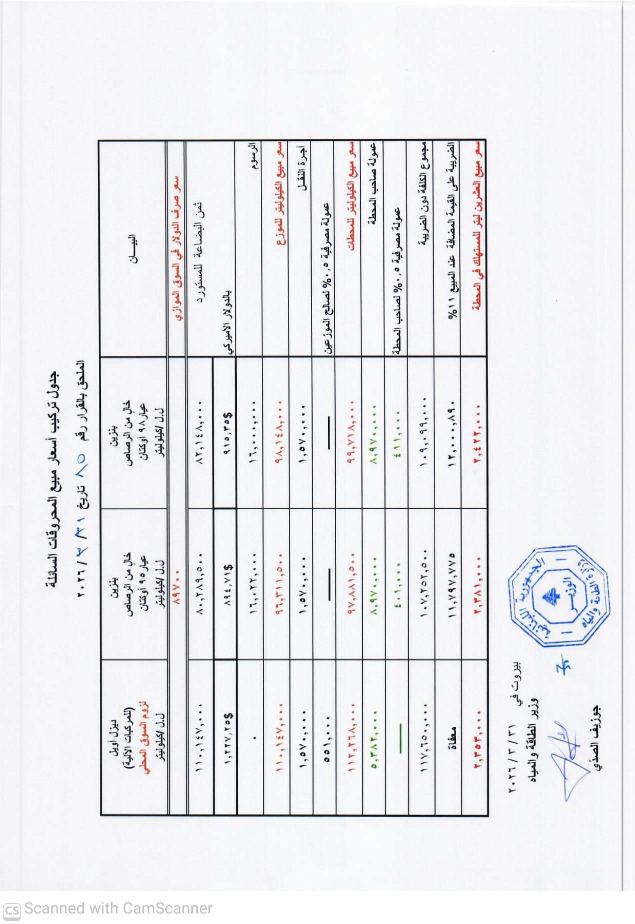 جدول تركيب أسعار مبيع المحروقات السائلة
الملحق بالقرار رقم ٨٥ تاريخ ٣١ / ٣ / ٢٠٢٦
البيـــان
بنزين
خال من الرصاص
عيار ٩٨ أوكتان
ل.ل/كيلوليتر
بنزين
خال من الرصاص
عيار ٩٥ أوكتان
ل.ل/كيلوليتر
ديزل أويل
(للمركبات الآلية)
لزوم السوق المحلي
ل.ل/كيلوليتر
سعر صرف الدولار في السوق الموازي ٨٩٧٠٠
ثمن البضاعة للمستورد ٨٢,١٤٨,٠٠٠ ٨٠,٢٨٩,٥٠٠ ١١٠,١٤٧,٠٠٠
بالدولار الأميركي ٩١٥,٣٥$ ٨٩٤,٧١$ ١,٢٢٧,٢٥$
الرسوم ١٦,٠٠٠,٠٠٠ ١٦,٠٢٢,٠٠٠ ٠
سعر مبيع الكيلوليتر للموزع ٩٨,١٤٨,٠٠٠ ٩٦,٣١١,٥٠٠ ١١٠,١٤٧,٠٠٠
أجرة النقل ١,٥٧٠,٠٠٠ ١,٥٧٠,٠٠٠ ١,٥٧٠,٠٠٠
عمولة مصرفية ٠.٥% لصالح الموزعين — — ٥٥١,٠٠٠
سعر مبيع الكيلوليتر للمحطات ٩٩,٧١٨,٠٠٠ ٩٧,٨٨١,٥٠٠ ١١٢,٢٦٨,٠٠٠
عمولة صاحب المحطة ٨,٩٧٠,٠٠٠ ٨,٩٧٠,٠٠٠ ٥,٣٨٢,٠٠٠
عمولة مصرفية ٠.٥% لصاحب المحطة ٤١١,٠٠٠ ٤٠١,٠٠٠ —
مجموع الكلفة دون الضريبة ١٠٩,٠٩٩,٠٠٠ ١٠٧,٢٥٢,٥٠٠ ١١٧,٦٥٠,٠٠٠
الضريبة على القيمة المضافة عند المبيع ١١% ١٢,٠٠٠,٨٩٠ ١١,٧٩٧,٧٧٥ معفاة
سعر مبيع العشرين ليتر للمستهلك في المحطة ٢,٤٢٢,٠٠٠ ٢,٣٨١,٠٠٠ ٢,٣٥٣,٠٠٠
بيروت في ٣١ / ٣ / ٢٠٢٦
وزير الطاقة والمياه
جوزيف الصدّي
الجمهورية اللبنانية
الوزير
وزارة الطاقة والمياه
CS Scanned with CamScanner